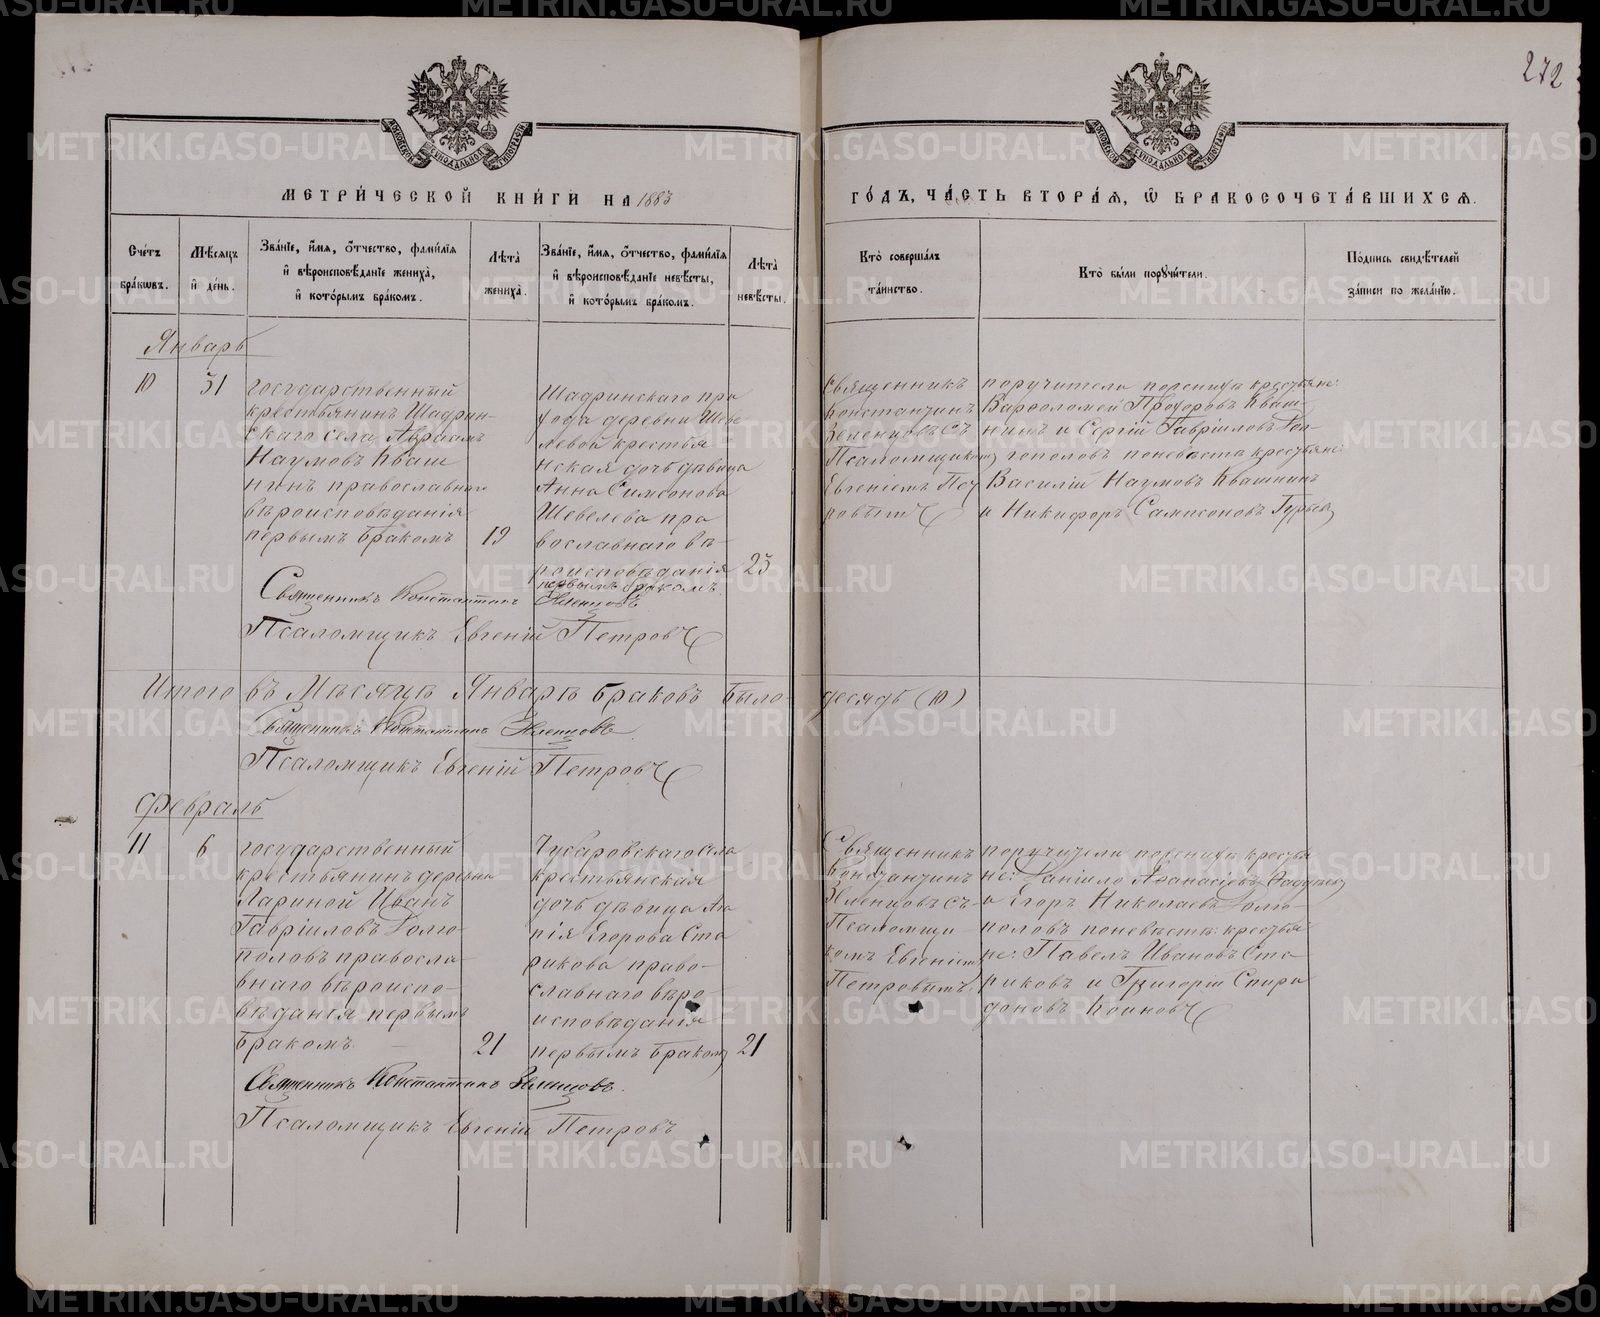 272
МОСКОВСКОЙ СѴНОДАЛЬНОЙ ТИПОГРАФІИ
МОСКОВСКОЙ СѴНОДАЛЬНОЙ ТИПОГРАФІИ
МЕТРИ́ЧЕСКОЙ КНИ́ГИ НА 1883
ГО́ДЪ, ЧА́СТЬ ВТОРА́Я, Ѽ БРАКОСОЧЕТА́ВШИХСЯ.
Сче́тъ бра́кѡвъ.
Мѣ́сяцъ и҆ де́нь.
Зва́нїе, и҆́мя, ѻ҆́тчество, фами́лїя
и҆ вѣроисповѣ́данїе жениха̀,
и҆ кото́рымъ бра́комъ.
Лѣ́та жениха̀.
Зва́нїе, и҆́мя, ѻ҆́тчество, фами́лїя
и҆ вѣроисповѣ́данїе невѣ́сты,
и҆ кото́рымъ бра́комъ.
Лѣ́та невѣ́сты.
Кто̀ соверша́лъ
та́инство.
Кто̀ бы́ли порꙋчи́тели.
По́дпись свидѣ́телей
за́писи по жела́нїю.
Январь
10
31
государственный
крестьянинъ Шадрин-
скаго села Авраамъ
Наумовъ Кваш
нинъ православнаго
вѣроисповѣданія
первымъ бракомъ
19
Шадринскаго при
хода деревни Шеве
левой крестья
нская дочь дѣвица
Анна Симсонова
Шевелева пра
вославнаго вѣ-
роисповѣданія
первымъ бракомъ.
23
Священникъ
Константинъ
Зеленцовъ съ
Псаломщикомъ
Евгеніемъ Пет
ровымъ
поручители по женихѣ крестьяне:
Варѳоломей Прохоровъ Кваш-
нинъ и Сергій Гавріиловъ Дол-
гополовъ по невѣстѣ крестьяне:
Василій Наумовъ Квашнинъ
и Никифоръ Сампсоновъ
Священникъ Константинъ Зеленцовъ
Псаломщикъ Евгеній Петровъ
Итого въ Мѣсяцѣ Январѣ браковъ было десять (10)
Священникъ Константинъ Зеленцовъ
Псаломщикъ Евгеній Петровъ
Февраль
11
6
государственный
крестьянинъ деревни
Лариной Иванъ
Гавріиловъ Долго-
половъ правосла-
внаго вѣроиспо-
вѣданія первымъ
бракомъ
21
Чусаровскаго села
крестьянская
дочь дѣвица Ма
рія Егорова Ста
рикова право-
славнаго вѣро-
исповѣданія
первымъ бракомъ
21
Священникъ
Константинъ
Зеленцовъ съ
Псаломщи-
комъ Евгеніемъ
Петровымъ
поручители по женихѣ крестья
не: Даніило Аѳанасіевъ
и Егоръ Николаевъ Долго-
половъ по невѣстѣ: крестья
не: Павелъ Ивановъ Ста
риковъ и Григорій Спири
доновъ Коиновъ
Священникъ Константинъ Зеленцовъ.
Псаломщикъ Евгеній Петровъ
METRIKI.GASO-URAL.RU